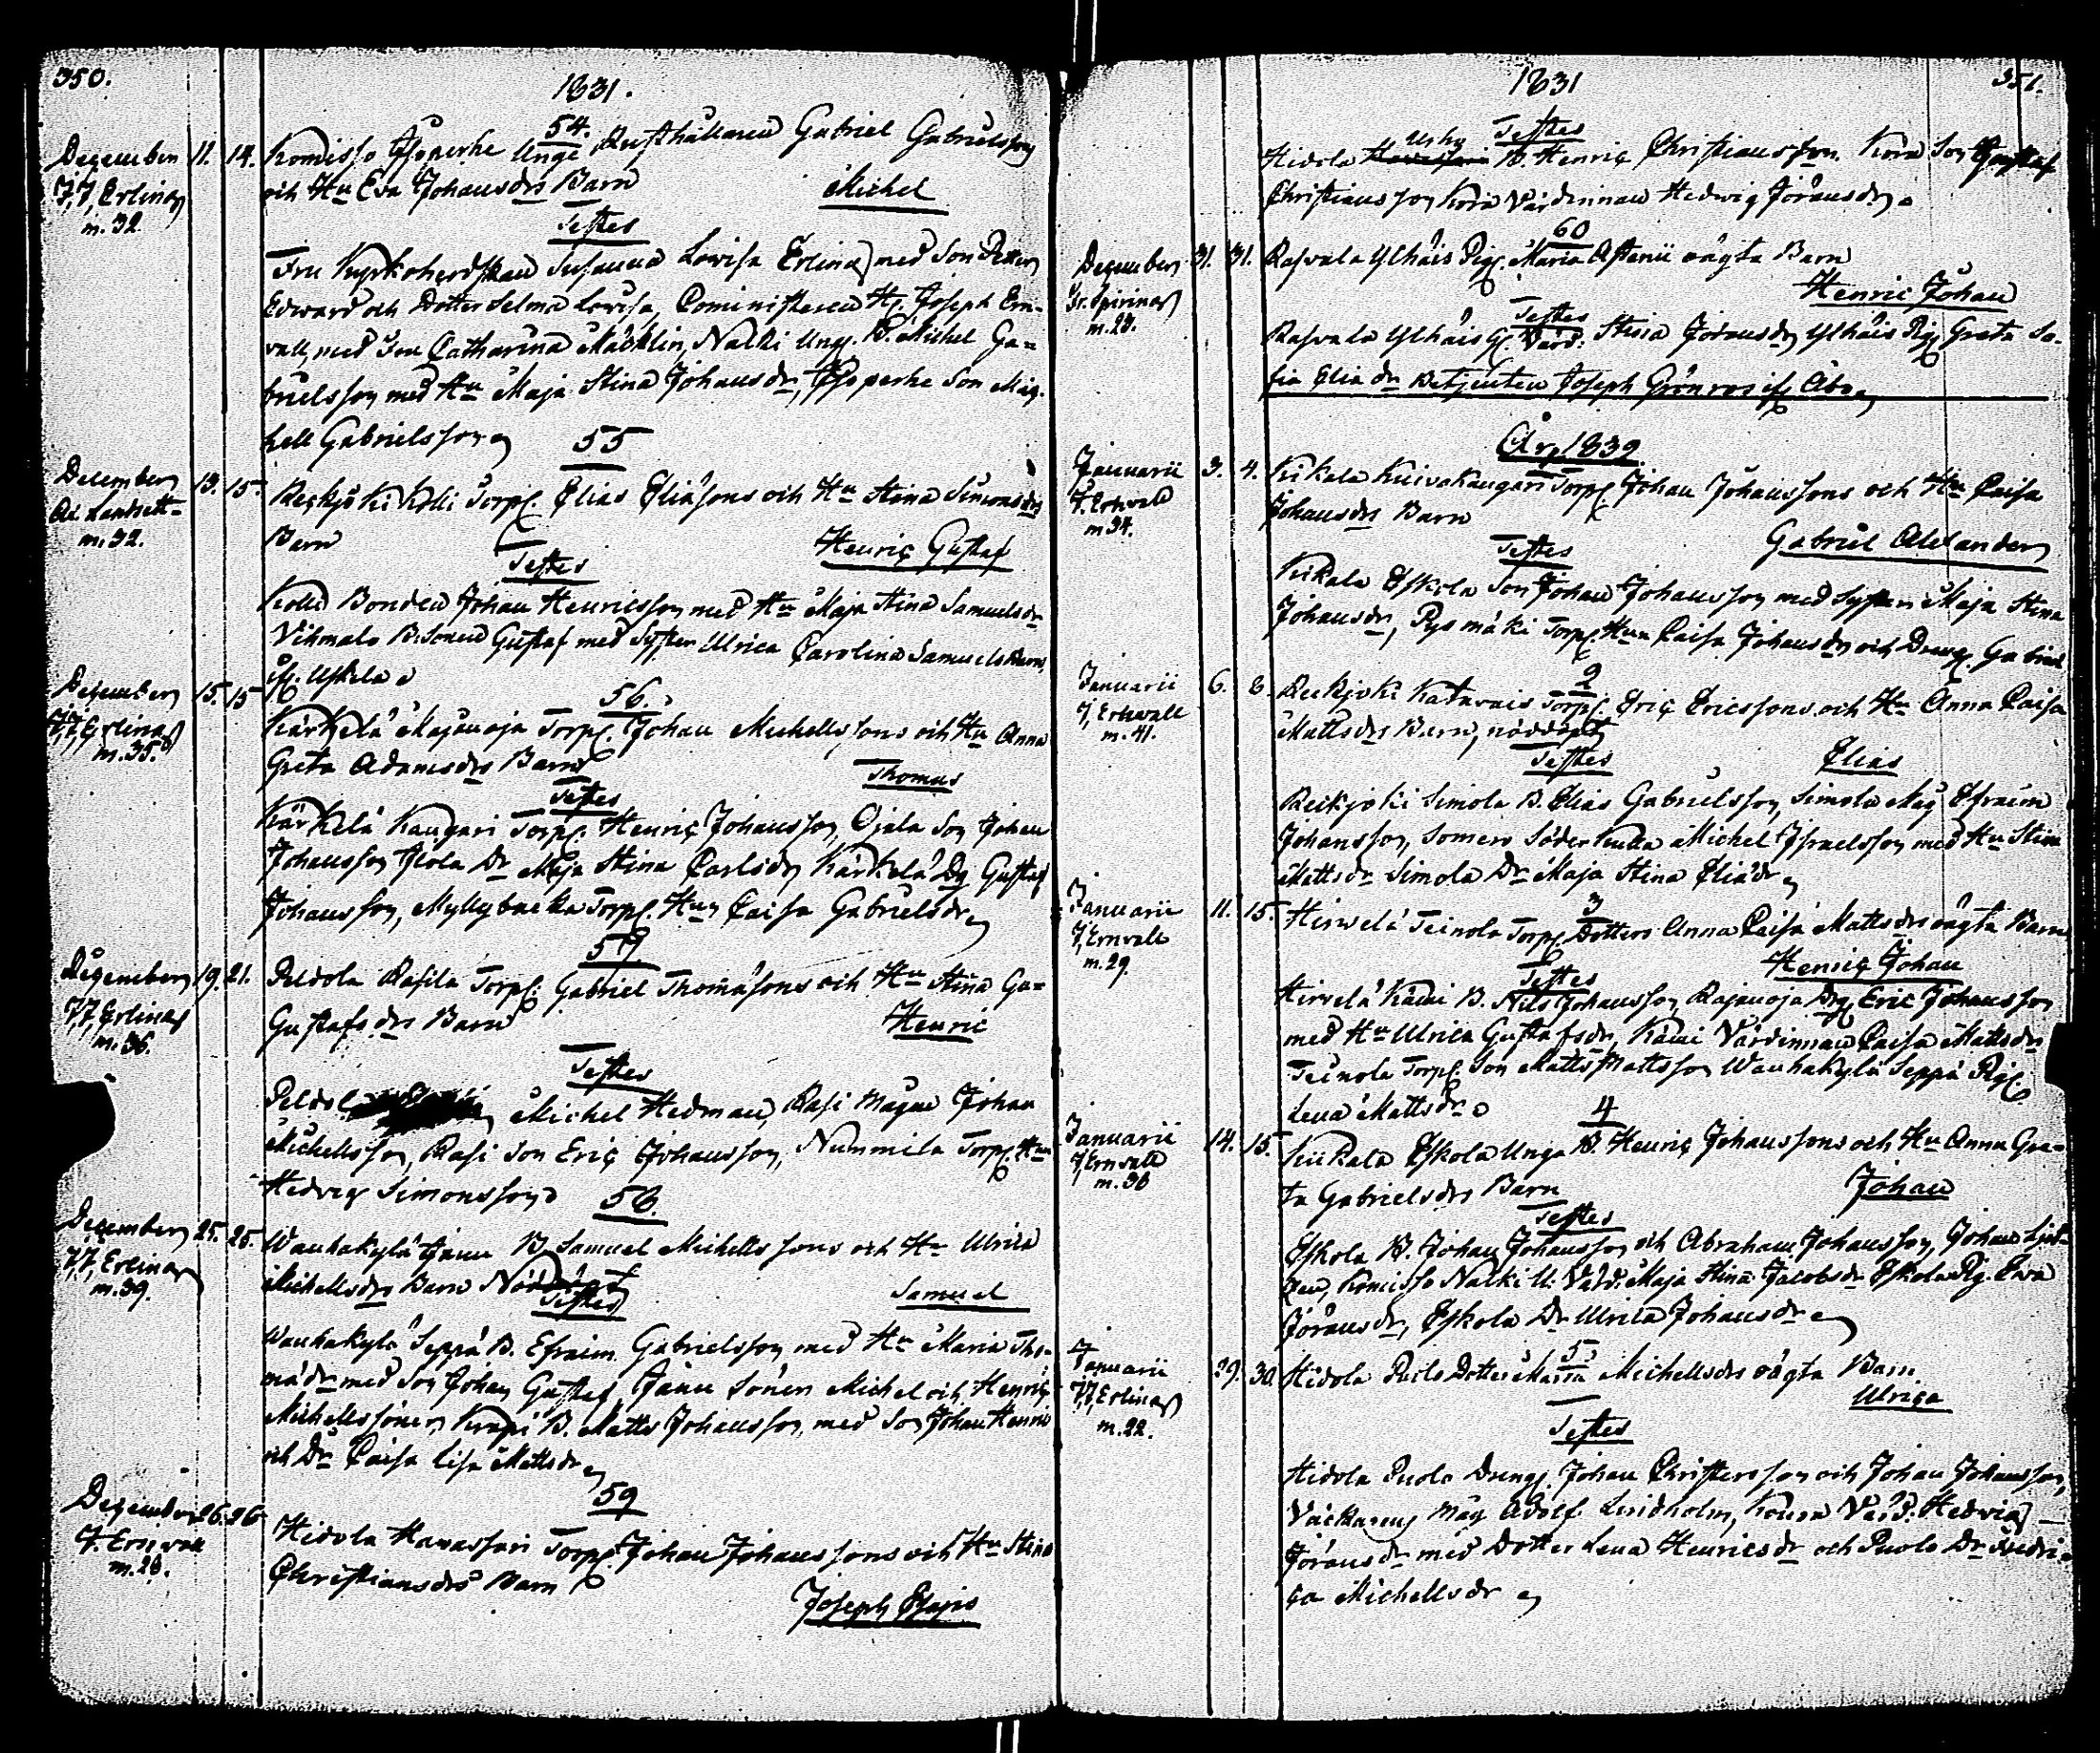 350.
1831.
54.
December 11. 14. Komisso Isoperhe Unge Rusthållaren Gabriel Gabrielsson
J,J, Erlinas och Hu Eva Johansdrs Barn Michel
m. 32.
Testes
Fru Kyrkoherdskan Susanna Lovisa Erlina med Son Petter
Edward och Dotter Selma Lovisa, Cominist Hr Joseph Ern-
vall med Fru Catharina Mäcklin, Nalki Unge B. Michel Ga-
brielsson med Hu Maja Stina Johansdr, Isoperhe Son Mic-
hell Gabrielsson
55
December 13. 15. Reckjoki Kolli Torp. Elias Eliäsons och Hu Stina Simonsdrs
Ad. Landsett
m. 32. Barn Henriç Gustaf
Testes
Kolli Bonden Johan Henricsson med Hu Maja Stina Samuelsdr
Vihmalo B. Sonen Gustaf med Syster Ulrica Carolina Samuels Barn,
if. Uskela
56.
December 15. 15 Kärkelä Majanoja Torp. Johan Michellssons och Hu Anna
J,J, Erlinas Greta Adamsdrs Barn Thomas
m. 35.
Testes
Kärkelä Kangari Torp. Henriç Johansson, Ojala Son Johan
Johansson Isola Dr Maja Stina Carlsdr Kärkelä Dg Gustaf
Johansson, Myllybacka Torp. Hun Caisa Gabrielsdr
57
December 19. 21. Peldola Rasila Torp. Gabriel Thomäsons och Hu Stina Gu=
J,J, Erlinas Gustafsdrs Barn Henric
m. 36.
Testes
Peldol Michel Hedman, Rasi Mågen Johan
Michellsson, Rasi Son Eriç Johansson, Nummila Torp. Hun
Hedvig Simonsson
58.
December 25. 25. Wanhakylä Jänu B. Samuel Michellssons och Hu Ulrica
J,J, Erlinas Michellsdrs Barn Nöddöpt Samuel
m. 39.
Testes
Wanhakylä Seppä B. Efraim Gabrielsson med Hu Maria Tho-
mädr med Son Johan Gustaf, Jänu Sönen Michel och Henriç
Michellssöner, Krapi B. Matts Johansson, med Son Johan Henric
och Dr Caisa Lisa Mattsdr
59
December 26. 26 Hidola Havassari Torp. Johan Johanssons och Hu Stina
J. Ernvall Christiansdrs Barn
m. 28.
Joseph Esajas
1831
351.
Testes
Uska
Hidola B. Henriç Christiansson. Kora Son Gustaf
Christiansson Kora Värdinnan Hedwig Jöransdr
60
December 31. 31. Rasvala Ylhäis Pig. Maria Asteni oägta Barn
Gr. Spirinas Henric Johan
m. 23.
Testes
Rasvala Ylhäis G. Värd: Stina Jöransdr Ylhäis Pig Greta So-
fia Eliadr Betjenten Joseph Grönros if. Åbo
År 1832
Januarii 3. 4. Kikala Kuivakangari Torp. Johan Johanssons och Hu Caisa
J. Ernvall Johansdrs Barn
m 34. Gabriel Alexander
Testes
Kikala Eskola Son Johan Johansson med Syster Maja Stina
Johansdr, Pysmäki Torp. Hun Caisa Johansdr och Dreng. Gabriel
2
Januarii 6. 8. Reckjoki Katavais Torp. Eriç Ericssons och Hu Anna Caisa
J, Ernvall Mattsdrs Barn, nöddöpt
m. 41. Elias
Testes
Reikjoki Simola B. Elias Gabrielsson, Simola Måg Efraim
Johansson, Somero Söder Michel Israelsson med Hu Stina
Mattsdr Simola Dr Maja Stina Eliädr
3
Januarii 11. 15. Hirvelä Teinola Torp. Dotters Anna Caisa Mattsdrs oägta Barn
J, Ernvall Henriç Johan
m. 29.
Testes
Hirvelä Kämi B. Nils Johansson, Rajanoja Dräg Eric Johansson
med Hu Ulrica Gustafsdr, Kämi Värdinnan Caisa Mattsdr
Teinola Torp. Son Matts Mattsson Wanhakylä Seppä Pig.
Lena Mattsdr
4
Januarii 14. 15. Kiikala Eskola Unga B. Henriç Johanssons och Hu Anna Gre-
J, Ernvall ta Gabrielsdrs Barn Johan
m. 30
Testes
Eskola B. Johan Johansson och Abraham Johansson, Johan
Komisso Nalki U. Värd: Maja Stina Jacobsdr Eskola Pig. Ewa
Jöransdr, Eskola Dr Ulrica Johansdr
5
Januarii 29. 30. Hidola Puolo Dotter Maria Michellsdrs oägta Barn
J,J, Erlinas Ulriça
m. 22.
Testes
Hidola Puolo Dreng. Johan Christersson och Johan Johansson,
Väckaren Måg Adolf Lindholm, Värd: Hedvig
Jöransdr med Dotter Lena Henricsdr och Puolo Dr Fredri-
ça Michellsdr